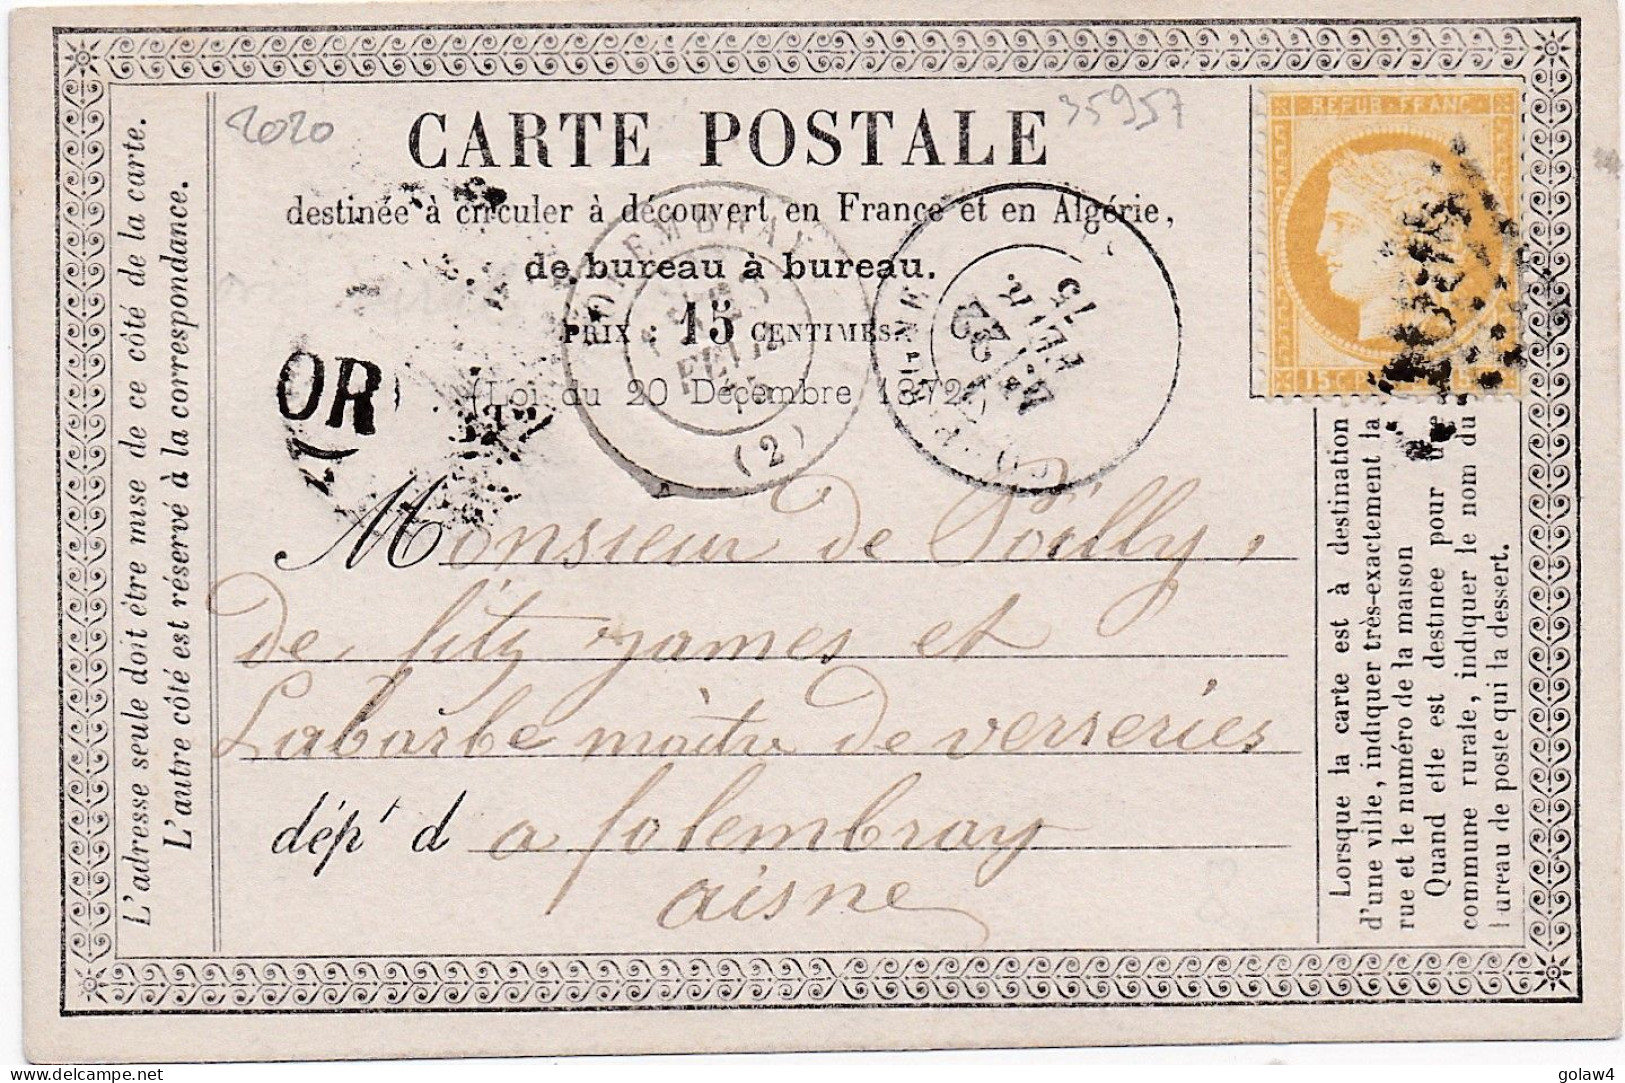 2020
35957
CARTE POSTALE
destinée à circuler à découvert en France et en Algérie,
de bureau à bureau.
PRIX 15 CENTIMES.
(Loi du 20 Décembre 1872)
REPUB. FRANC.
15 C
FOLEMBRAY
FEVR
75
(2)
22
FEVR.
75
OR
Monsieur de Poilly,
de fitz james et
Labarbe maître de verreries
dép' d a folembray
aisne
L'adresse seule doit être mise de ce côté de la carte.
L'autre côté est réservé à la correspondance.
Lorsque la carte est à destination
d'une ville, indiquer très-exactement la
rue et le numéro de la maison
Quand elle est destinée pour une
commune rurale, indiquer le nom du
bureau de poste qui la dessert.
golaw4
delcampe.net